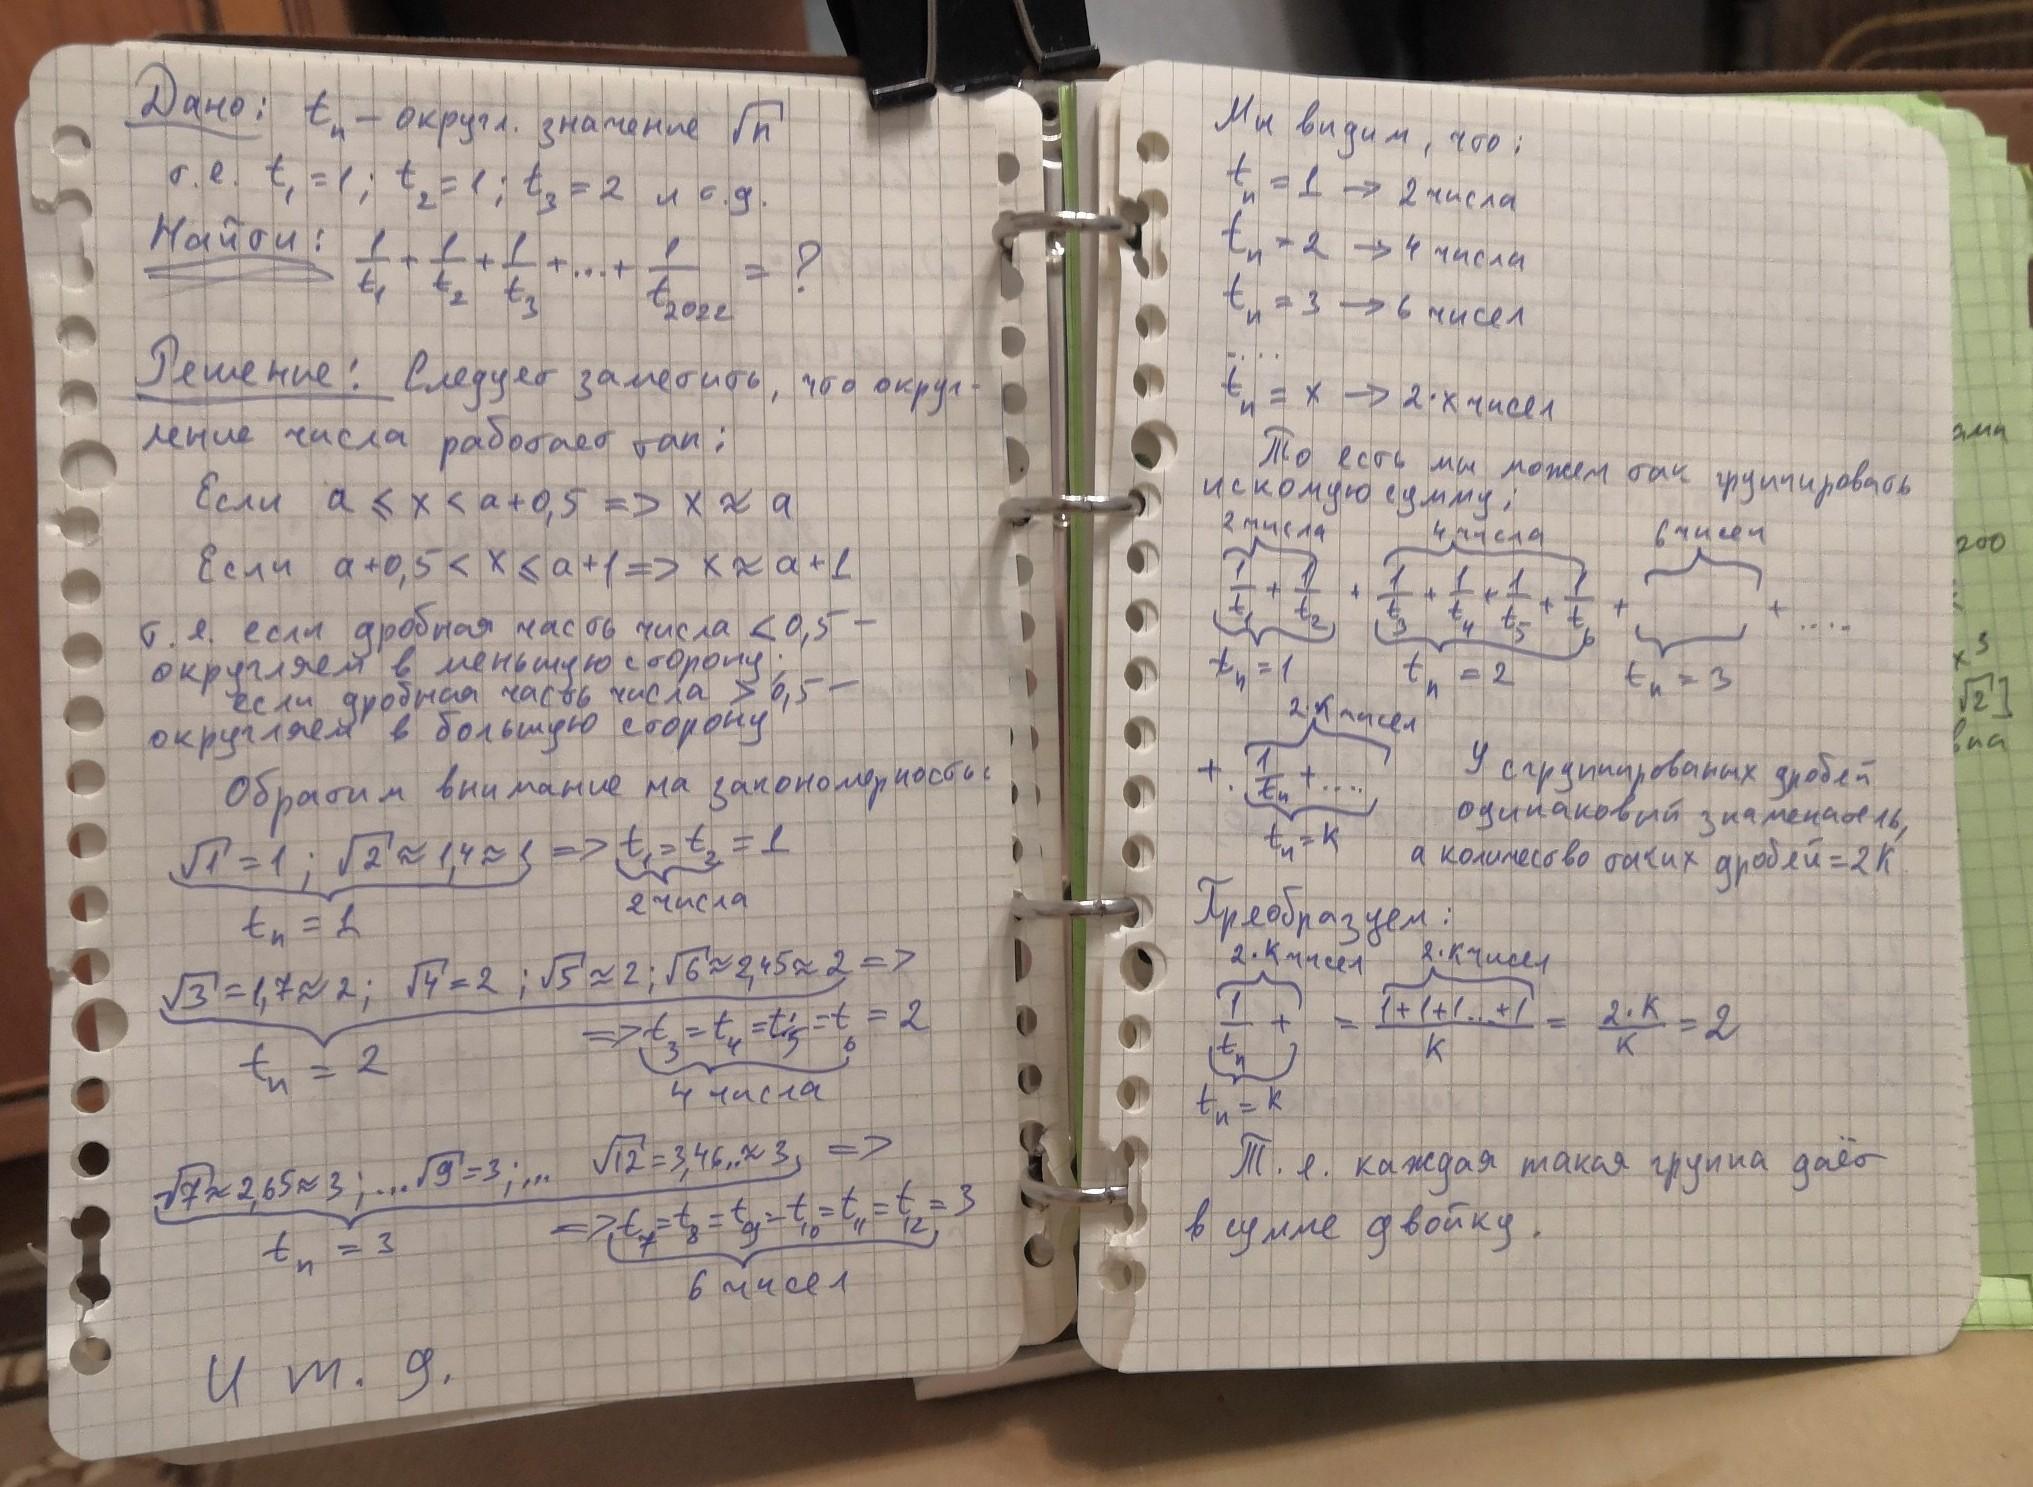 Дано: tₙ – округл. значение √n
т.е. t₁ = 1; t₂ = 1; t₃ = 2 и т.д.
Найти: 1/t₁ + 1/t₂ + 1/t₃ + ... + 1/t₂₀₂₂ = ?
Решение: Следует заметить, что округ-
ление числа работает так:
Если a ≤ x < a+0,5 => x ≈ a
Если a+0,5 < x ≤ a+1 => x ≈ a+1
т.е. если дробная часть числа < 0,5 –
округляем в меньшую сторону;
если дробная часть числа > 0,5 –
округляем в большую сторону
Обратим внимание на закономерность:
√1 = 1; √2 ≈ 1,4 ≈ 1 => t₁ = t₂ = 1
tₙ = 1
2 числа
√3 = 1,7 ≈ 2; √4 = 2; √5 ≈ 2; √6 ≈ 2,45 ≈ 2 =>
=> t₃ = t₄ = t₅ = t₆ = 2
tₙ = 2
4 числа
√7 ≈ 2,65 ≈ 3; ... √9 = 3; ... √12 = 3,46.. ≈ 3; =>
=> t₇ = t₈ = t₉ = t₁₀ = t₁₁ = t₁₂ = 3
tₙ = 3
6 чисел
И т. д.
Мы видим, что:
tₙ = 1 → 2 числа
tₙ = 2 → 4 числа
tₙ = 3 → 6 чисел
....
tₙ = x → 2·x чисел
То есть мы можем так групировать
искомую сумму;
2 числа 4 числа 6 чисел
1/t₁ + 1/t₂ + 1/t₃ + 1/t₄ + 1/t₅ + 1/t₆ + + ....
tₙ = 1 tₙ = 2 tₙ = 3
2·k чисел
+ 1/tₙ + ....
tₙ = k
У сгруппированых дробей
одинаковый знаменатель,
а количество таких дробей = 2k
Преобразуем:
2·k чисел 2·k чисел
1/tₙ + = (1+1+1...+1)/k = 2·k/k = 2
tₙ = k
Т. е. каждая такая группа даёт
в сумме двойку.
ами
200
x³
√2]